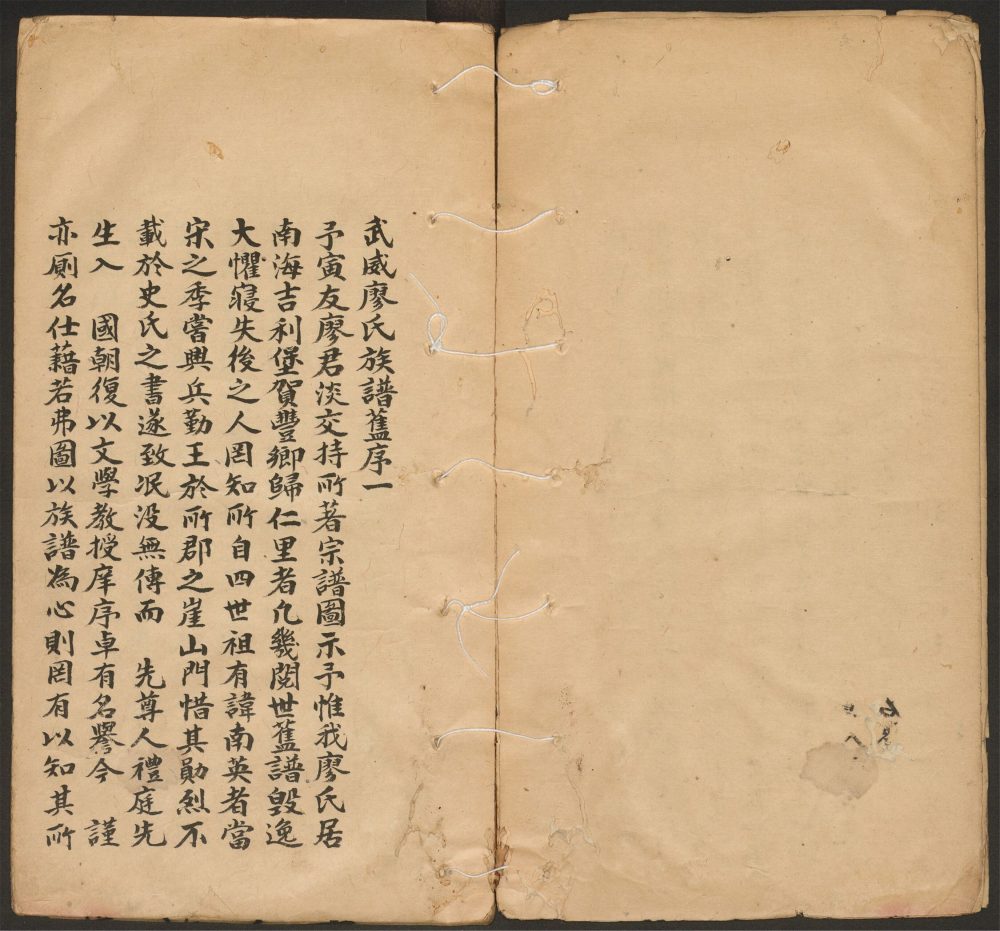 武威廖氏族譜舊序一
予寅友廖君淡交持所著宗譜圖示予惟我廖氏居
南海吉利堡賀豐鄉歸仁里者凡幾閱世舊譜毀逸
大懼寖失後之人罔知所自四世祖有諱南英者當
宋之季嘗興兵勤王於所郡之崖山門惜其勛烈不
載於史氏之書遂致泯没無傳而　先尊人禮庭先
生入　國朝復以文學教授庠序卓有名譽今　謹
亦厠名仕藉若弗圖以族譜為心則罔有以知其所